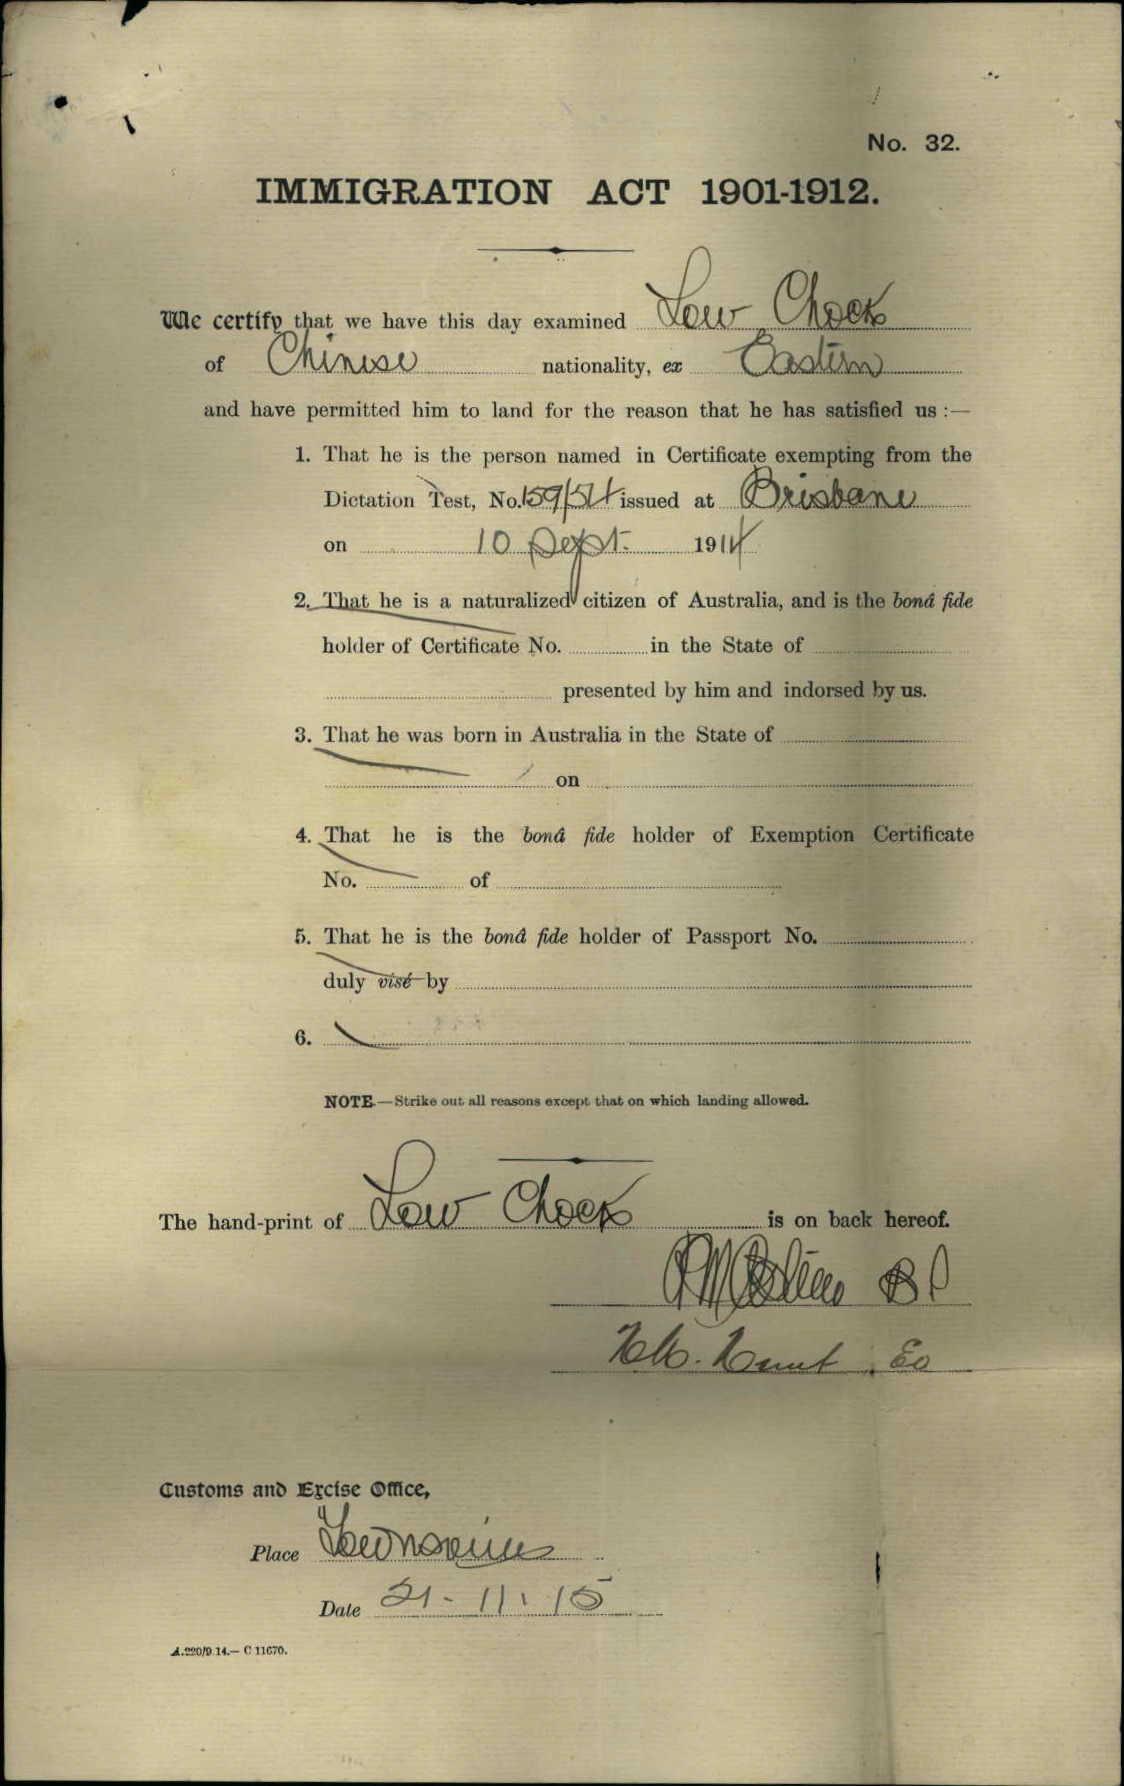 No. 32.
IMMIGRATION ACT 1901-1912.
We certify that we have this day examined Low Chock
of Chinese nationality, ex Eastern
and have permitted him to land for the reason that he has satisfied us :—
1. That he is the person named in Certificate exempting from the
Dictation Test, No. 159/54 issued at Brisbane
on 10 Sept. 1914
2. That he is a naturalized citizen of Australia, and is the bonâ fide
holder of Certificate No. in the State of
presented by him and indorsed by us.
3. That he was born in Australia in the State of
on
4. That he is the bonâ fide holder of Exemption Certificate
No. of
5. That he is the bonâ fide holder of Passport No.
duly visé by
6.
NOTE.—Strike out all reasons except that on which landing allowed.
The hand-print of Low Chock is on back hereof.
Hunt Eo
Customs and Excise Office,
Place Townsville
Date 21.11.15
A.220/9.14.—C 11670.